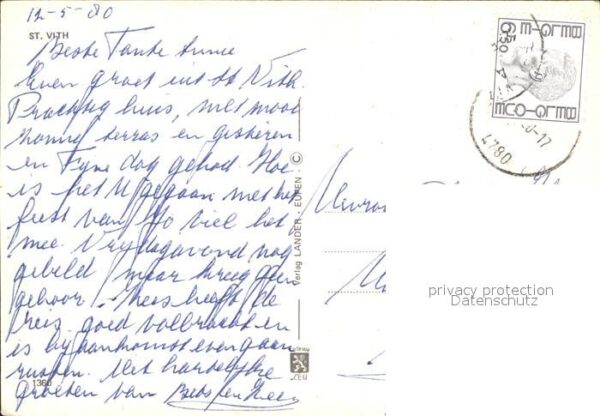 12-5-80
ST. VITH
Beste Tante Annie
Even groet uit St Vith.
Prachtig huis, met mooi
zonnig terras en gisteren
en fijne dag gehad. Hoe
is het U gegaan met het
feest van Jo viel het
mee. Vrijdagavond nog
gebeld maar kreeg geen
gehoor. Kees heeft de
reis goed volbracht en
is bij aankomst even gaan
rusten. Met hartelijke
groeten van Bets en Kees
1360
Verlag LANDER - EUPEN - ©
BELGIE
BELGIQUE
6F50
4780
Mevrouw
privacy protection
Datenschutz